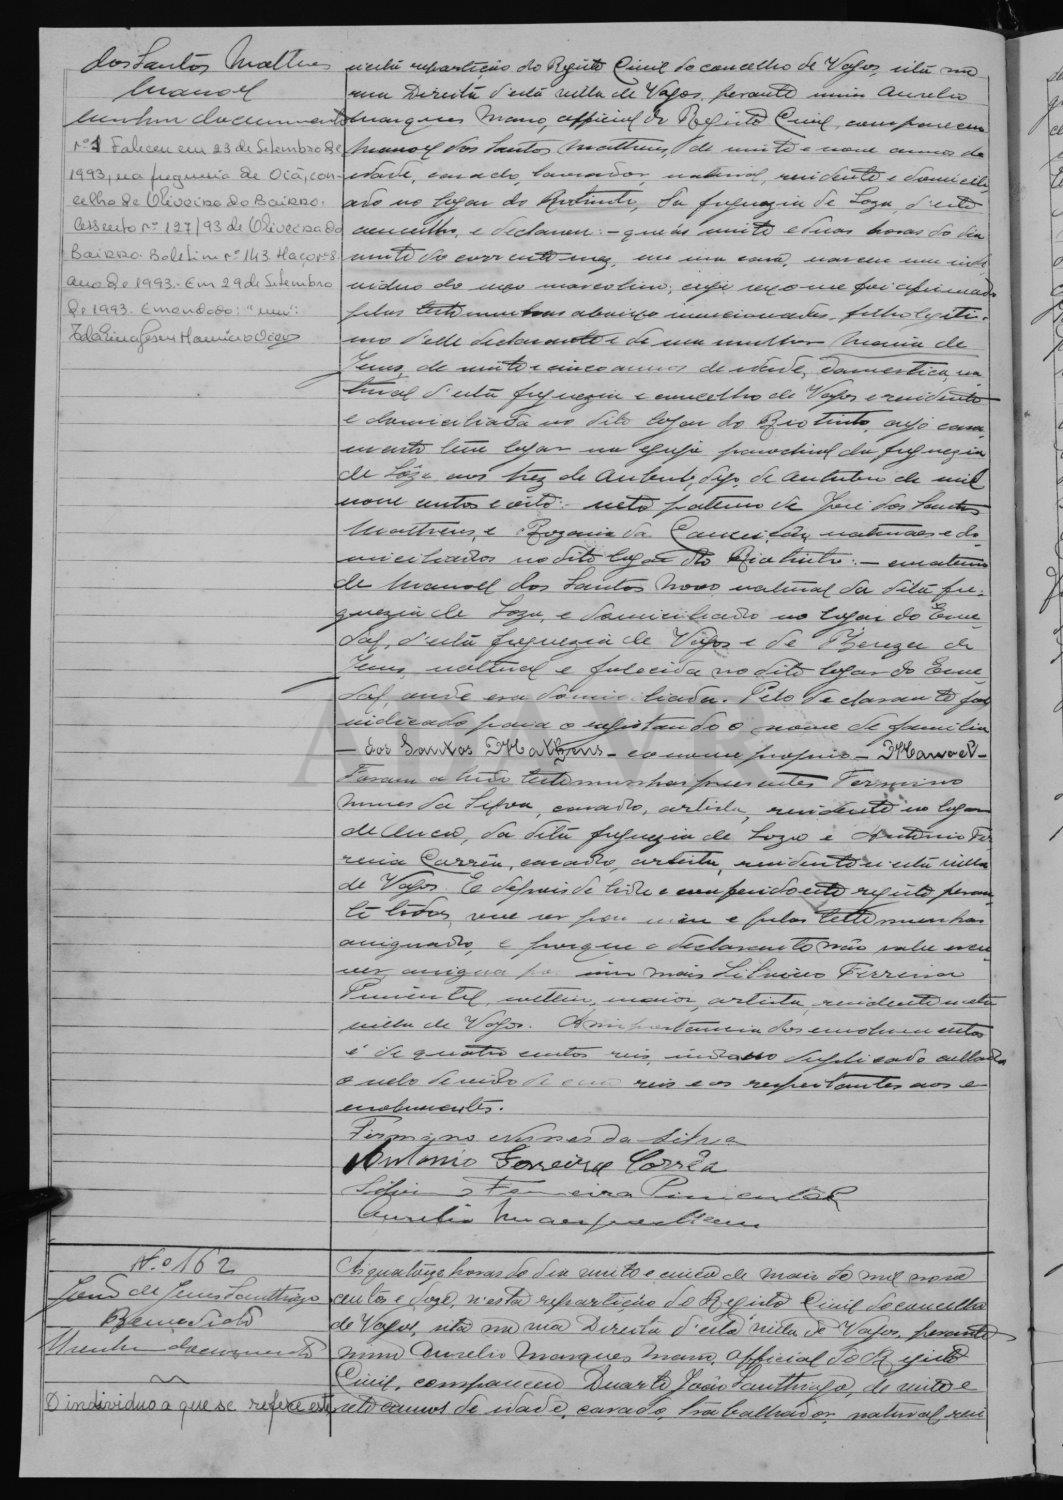 dos Santos Matheus
Manoel
Nenhum documento
nº 1 Faleceu em 23 de Setembro de
1993, na freguesia de Oiã, con-
celho de Oliveira do Bairro.
Assento nº 127/93 de Oliveira do
Bairro. Boletim nº 143 Maço nº 8
ano de 1993. Em 29 de Setembro
de 1993. Emendado: "um":
n'esta repartição do Registo Civil do concelho de Vagos, sita na
rua Direita d'esta villa de Vagos, perante mim Aurelio
Marques Mano, official do Registo Civil, compareceu
Manoel dos Santos Matheus, de vinte e nove annos de
idade, casado, lavrador, natural, residente e domicili-
ado no logar do Riotinto, da freguezia de Soza, d'este
concelho, e declarou: - que ás vinte e duas horas do dia
vinte do corrente mez, em sua casa, nasceu um indi-
viduo do sexo masculino, cujo sexo me foi afirmado
pelas testemunhas abaixo mencionadas, filho legiti-
mo d'elle declarante e de sua mulher Maria de
Jesus, de vinte e cinco annos de idade, domestica, na-
tural d'esta freguezia e concelho de Vagos e residente
e domiciliada no dito logar do Riotinto, cujo casa-
mento teve logar na egreja parochial da freguezia
de Sôza aos trez de Outubro, digo, de outubro de mil
nove centos e oito: neto paterno de José dos Santos
Matheus, e Rozaria da Conceição, naturaes e do-
miciliados no dito logar do Riotinto: - e materno
de Manoel dos Santos Novo natural da dita fre-
guezia de Soza, e domiciliado no logar do
d'esta freguezia de Vagos e de Thereza de
Jesus, natural e falecida no dito logar do
onde era domiciliada. Pelo declarante foi
indicado para o registando o nome de familia
- dos Santos Matheus - e o nome proprio - Manoel -
Foram a tudo testemunhas presentes Firmino
Nunes da Silva, casado, artista, residente no logar
de da dita freguezia de Soza e Antonio Fer-
reira Corrêa, casado, artista, residente n'esta villa
de Vagos. E depois de lido e conferido este registo peran-
te todos, vae ser por mim e pelas testemunhas
assignado, e porque o declarante não sabe escre-
ver, assigna por mim mais Silvino Ferreira
Pimentel, solteiro, maior, artista, residente n'esta
villa de Vagos. A importancia dos emolumentos
é de quatro centos reis, no duplicado collado
o selo devido de cem reis e os respeitantes aos e-
molumentos.
Firmino Nunes da Silva
Antonio Ferreira Corrêa
Silvino Ferreira Pimentel
Aurelio Marques Mano
N.º 162
José de Jesus Santhiago
Benedicto
Nenhum documento
O individuo a que se refere este
Ás quatorze horas do dia vinte e cinco de maio de mil nove
centos e doze, n'esta repartição do Registo Civil do concelho
de Vagos, sita na rua Direita d'esta villa de Vagos, perante
mim Aurelio Marques Mano, official do Registo
Civil, compareceu Duarte João Santhiago, de vinte e
oito annos de idade, casado, trabalhador, natural, resi-